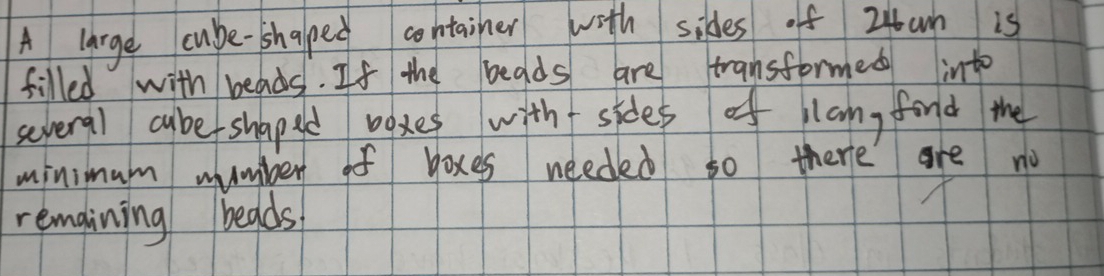 A large cube-shaped container with sides of 24cm is
filled with beads. If the beads are transformed into
several cube-shaped boxes with sides of 11cm, find the
minimum number of boxes needed so there are no
remaining beads.